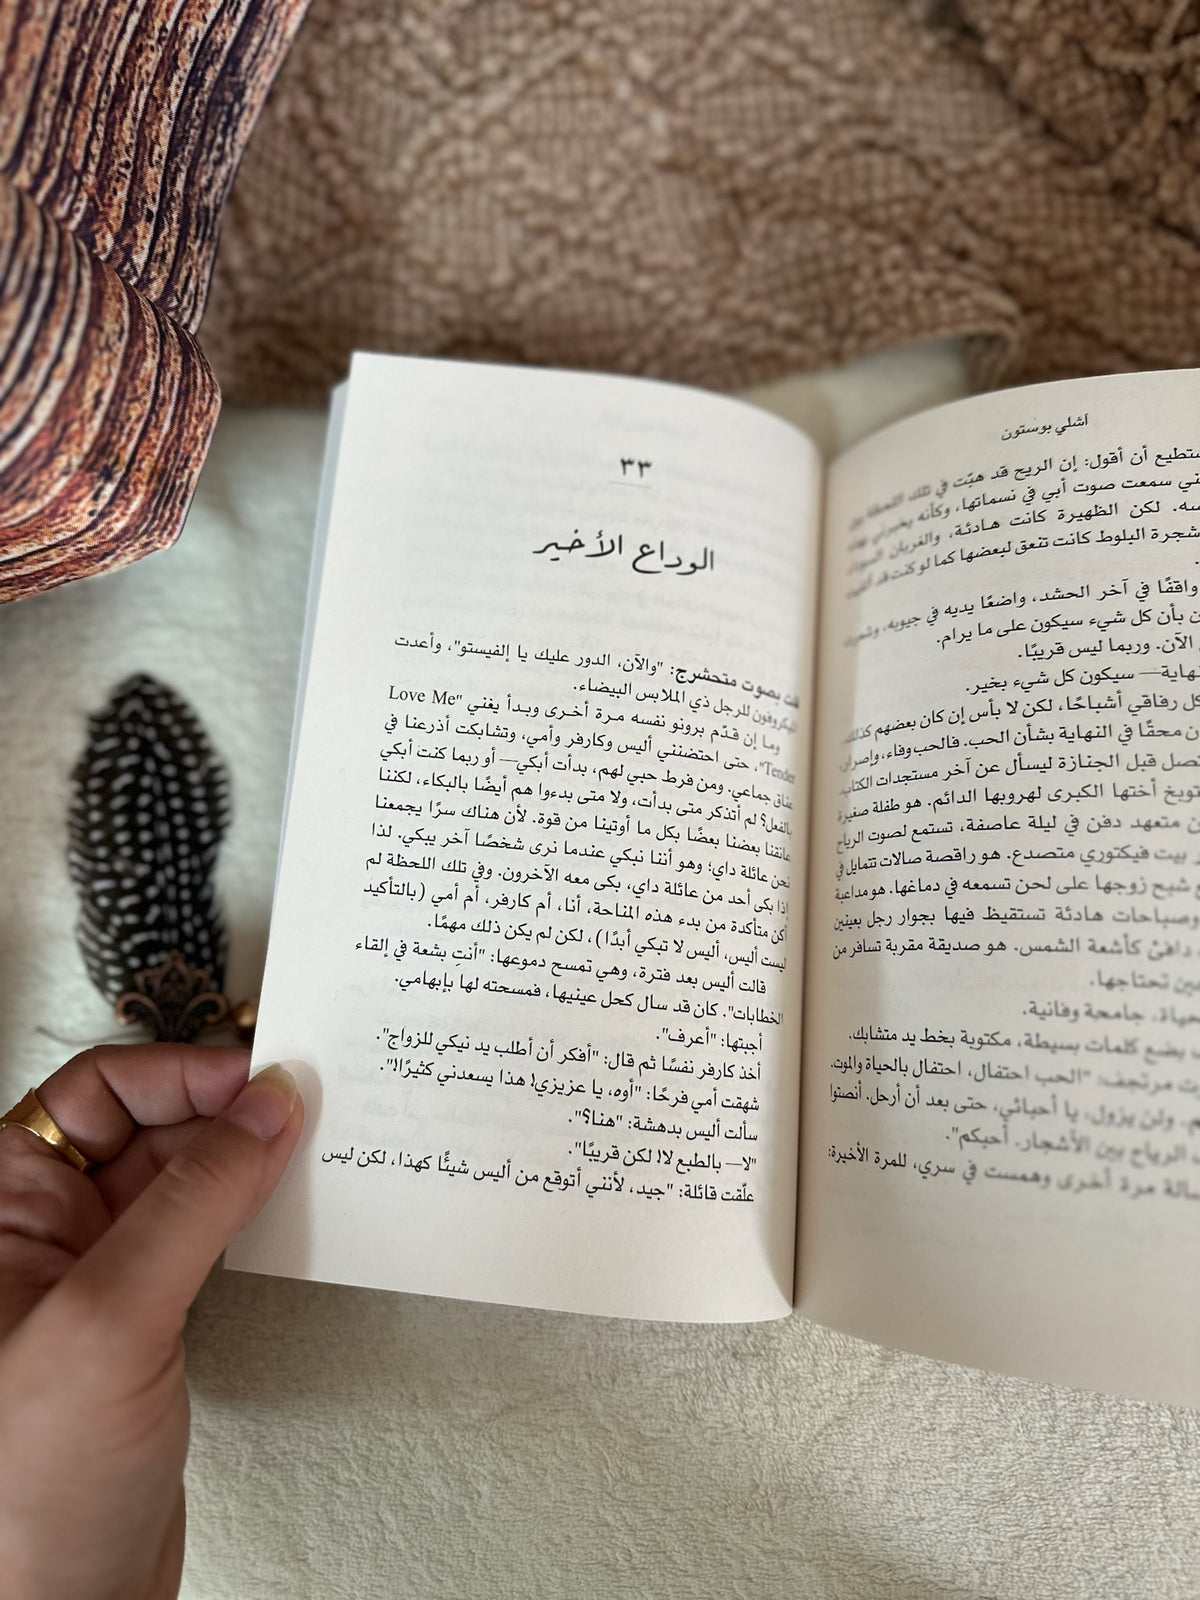 أشلي بوستون
ستطيع أن أقول: إن الريح قد هبّت في تلك اللحظة
ني سمعت صوت أبي في نسماتها، وكأنه يخبرني
سه. لكن الظهيرة كانت هادئة، والغربان السوداء
شجرة البلوط كانت تنعق لبعضها كما لو كنت قد
واقفًا في آخر الحشد، واضعًا يديه في جيوبه، وشعرت
ن بأن كل شيء سيكون على ما يرام.
الآن. وربما ليس قريبًا.
نهاية— سيكون كل شيء بخير.
كل رفاقي أشباحًا، لكن لا بأس إن كان بعضهم كذلك.
ن محقًا في النهاية بشأن الحب. فالحب وفاء، وإصرار،
تصل قبل الجنازة ليسأل عن آخر مستجدات الكتاب،
توبخ أختها الكبرى لهروبها الدائم. هو طفلة صغيرة
ن متعهد دفن في ليلة عاصفة، تستمع لصوت الرياح
بيت فيكتوري متصدع. هو راقصة صالات تتمايل في
شبح زوجها على لحن تسمعه في دماغها. هو مداعبة
وصباحات هادئة تستيقظ فيها بجوار رجل بعينين
دافئ كأشعة الشمس. هو صديقة مقربة تسافر من
ين تحتاجها.
حياة. جامحة وفانية.
بضع كلمات بسيطة، مكتوبة بخط يد متشابك.
ت مرتجف: "الحب احتفال، احتفال بالحياة والموت.
م. ولن يزول، يا أحبائي، حتى بعد أن أرحل. أنصتوا
الرياح بين الأشجار. أحبكم".
سالة مرة أخرى وهمست في سري، للمرة الأخيرة:
٣٣
الوداع الأخير
قلت بصوت متحشرج: "والآن، الدور عليك يا إلفيستو"، وأعدت
الميكروفون للرجل ذي الملابس البيضاء.
وما إن قدّم برونو نفسه مرة أخرى وبدأ يغني "Love Me
Tender"، حتى احتضنني أليس وكارفر وأمي، وتشابكت أذرعنا في
عناق جماعي. ومن فرط حبي لهم، بدأت أبكي— أو ربما كنت أبكي
بالفعل؟ لم أتذكر متى بدأت، ولا متى بدءوا هم أيضًا بالبكاء، لكننا
عانقنا بعضنا بعضًا بكل ما أوتينا من قوة. لأن هناك سرًا يجمعنا
نحن عائلة داي؛ وهو أننا نبكي عندما نرى شخصًا آخر يبكي. لذا
إذا بكى أحد من عائلة داي، بكى معه الآخرون. وفي تلك اللحظة لم
أكن متأكدة من بدء هذه المناحة، أنا، أم كارفر، أم أمي (بالتأكيد
ليست أليس، أليس لا تبكي أبدًا)، لكن لم يكن ذلك مهمًا.
قالت أليس بعد فترة، وهي تمسح دموعها: "أنتِ بشعة في إلقاء
الخطابات". كان قد سال كحل عينيها، فمسحته لها بإبهامي.
أجبتها: "أعرف".
أخذ كارفر نفسًا ثم قال: "أفكر أن أطلب يد نيكي للزواج".
شهقت أمي فرحًا: "أوه، يا عزيزي! هذا يسعدني كثيرًا!".
سألت أليس بدهشة: "هنا؟".
"لا— بالطبع لا! لكن قريبًا".
علّقت قائلة: "جيد، لأنني أتوقع من أليس شيئًا كهذا، لكن ليس